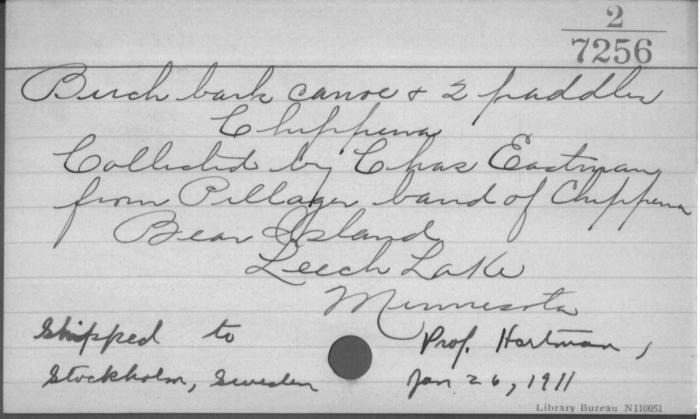 2
7256
Birch bark canoe & 2 paddles
Chippewa
Collected by Chas Eastman
from Pillager band of Chippewa
Bear Island
Leech Lake
Minnesota
Shipped to Prof. Hartman,
Stockholm, Sweden Jan 26, 1911
Library Bureau N110051